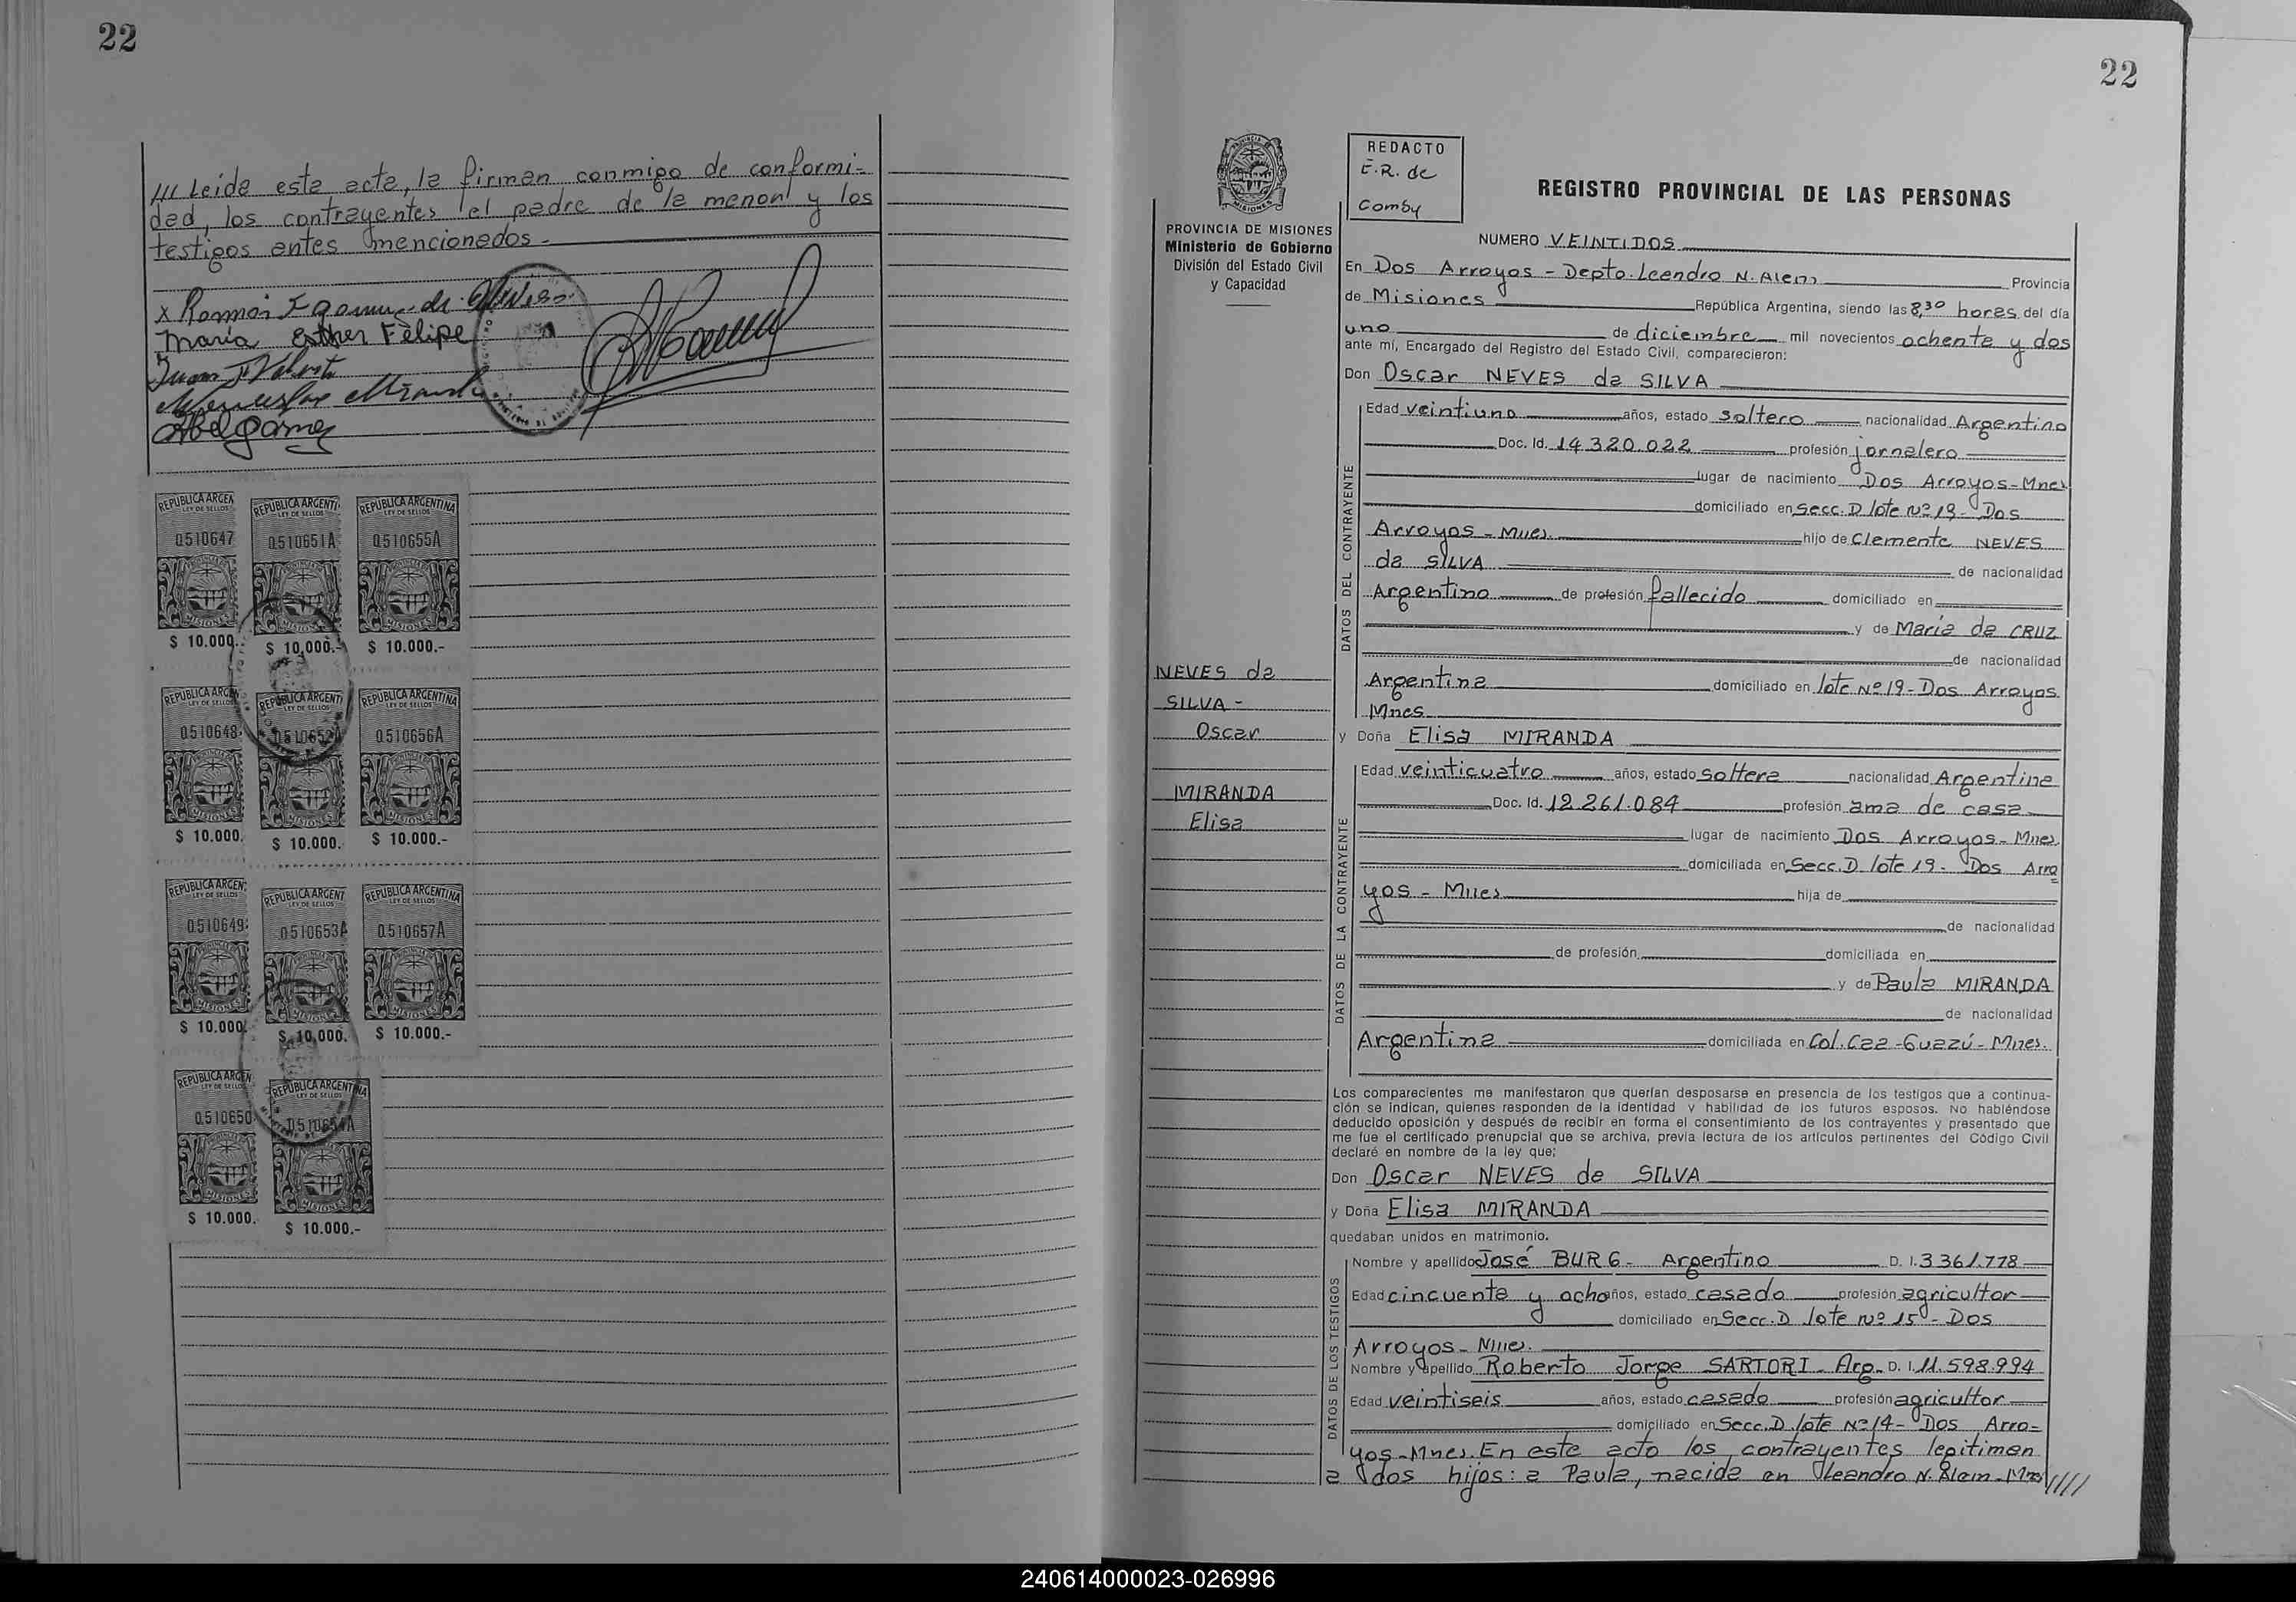 22
/// Leida esta acta, la firman conmigo de conformi-
dad, los contrayentes el padre de la menor y los
testigos antes mencionados.-
María Esther Fèlipe
REPUBLICA ARGEN
LEY DE SELLOS
0510647
$ 10.000.
REPUBLICA ARGENTI
LEY DE SELLOS
0510651A
MISIONES
$ 10.000.-
REPUBLICA ARGENTINA
LEY DE SELLOS
0510655A
MISIONES
$ 10.000.-
REPUBLICA ARGEN
LEY DE SELLOS
0510648
$ 10.000.
REPUBLICA ARGENTI
LEY DE SELLOS
0510652A
$ 10.000.
REPUBLICA ARGENTINA
LEY DE SELLOS
0510656A
MISIONES
$ 10.000.-
REPUBLICA ARGEN
LEY DE SELLOS
0510649
MISIONES
$ 10.000.
REPUBLICA ARGENT
LEY DE SELLOS
0510653A
MISIONES
$ 10.000.
REPUBLICA ARGENTINA
LEY DE SELLOS
0510657A
MISIONES
$ 10.000.-
REPUBLICA ARGEN
LEY DE SELLOS
0510650
MISIONES
$ 10.000.
REPUBLICA ARGENTINA
LEY DE SELLOS
0510654A
MISIONES
$ 10.000.-
22
PROVINCIA DE MISIONES
Ministerio de Gobierno
División del Estado Civil
y Capacidad
REDACTO
E.R. de
Comby
REGISTRO PROVINCIAL DE LAS PERSONAS
NUMERO VEINTIDOS
En Dos Arroyos - Depto. Leandro N. Alem Provincia
de Misiones República Argentina, siendo las 8,30 horas del día
uno de diciembre mil novecientos ochenta y dos
ante mí, Encargado del Registro del Estado Civil, comparecieron:
Don Oscar NEVES da SILVA
DATOS DEL CONTRAYENTE
Edad veintiuno años, estado soltero nacionalidad Argentino
Doc. Id. 14.320.022 profesión jornalero
lugar de nacimiento Dos Arroyos-Mnes
domiciliado en Secc. D lote Nº 19- Dos
Arroyos - Mnes. hijo de Clemente NEVES
da SILVA de nacionalidad
Argentino de profesión fallecido domiciliado en
y de María da CRUZ
de nacionalidad
Argentina domiciliado en lote Nº 19- Dos Arroyos
Mnes.
NEVES da
SILVA -
Oscar
MIRANDA
Elisa
y Doña Elisa MIRANDA
DATOS DE LA CONTRAYENTE
Edad veinticuatro años, estado soltera nacionalidad Argentina
Doc. Id. 12.261.084 profesión ama de casa
lugar de nacimiento Dos Arroyos - Mnes.
domiciliada en Secc. D lote 19- Dos Arro
yos - Mnes hija de
de nacionalidad
de profesión domiciliada en
y de Paula MIRANDA
de nacionalidad
Argentina domiciliada en Col. Caa-Guazú- Mnes.
Los comparecientes me manifestaron que querían desposarse en presencia de los testigos que a continua-
ción se indican, quienes responden de la identidad y habilidad de los futuros esposos. No habiéndose
deducido oposición y después de recibir en forma el consentimiento de los contrayentes y presentado que
me fue el certificado prenupcial que se archiva, previa lectura de los artículos pertinentes del Código Civil
declaré en nombre de la ley que;
Don Oscar NEVES da SILVA
y Doña Elisa MIRANDA
quedaban unidos en matrimonio.
DATOS DE LOS TESTIGOS
Nombre y apellido José BURG - Argentino D. I. 3.361.778
Edad cincuenta y ocho años, estado casado profesión agricultor
domiciliado en Secc. D lote Nº 15 - Dos
Arroyos - Mnes.
Nombre y apellido Roberto Jorge SARTORI - Arg. D. I. 11.598.994
Edad veintiseis años, estado casado profesión agricultor
domiciliado en Secc. D lote Nº 14- Dos Arro-
yos-Mnes. En este acto los contrayentes legitiman
a dos hijos: a Paula, nacida en Leandro N. Alem-Mnes ////
240614000023-026996